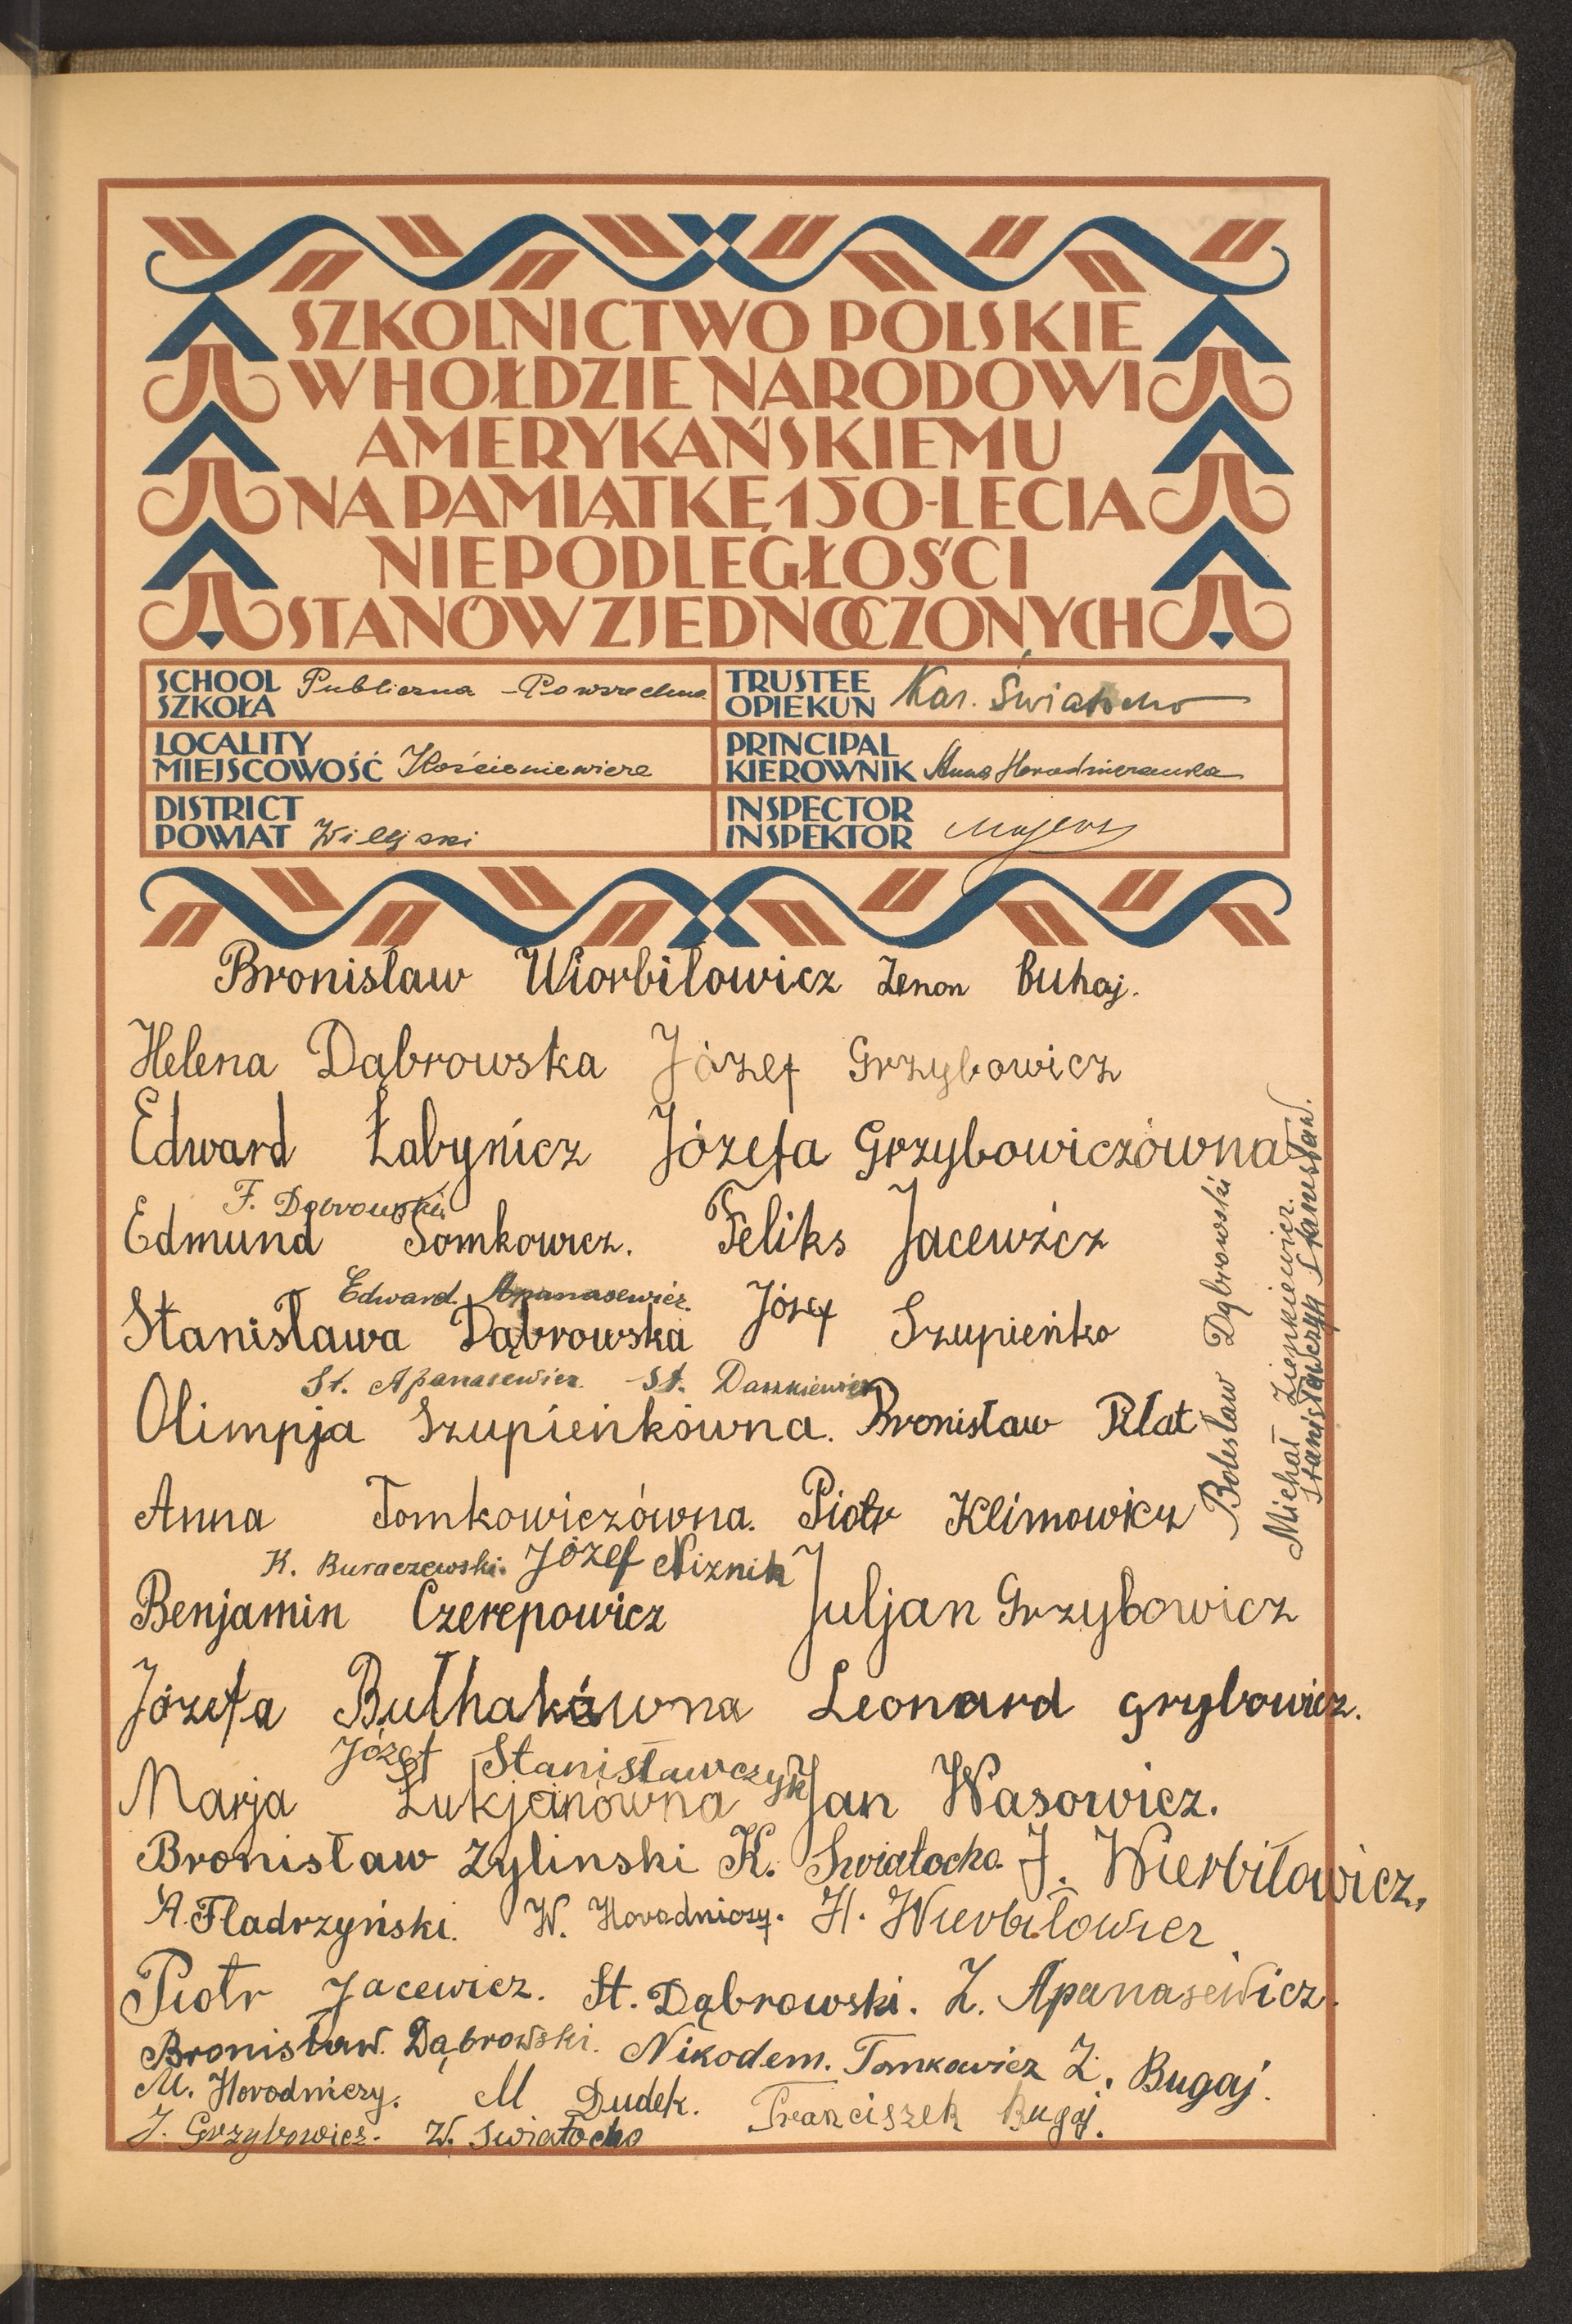 SZKOLNICTWO POLSKIE
W HOŁDZIE NARODOWI
AMERYKAŃSKIEMU
NA PAMIĄTKĘ 150-LECIA
NIEPODLEGŁOŚCI
STANÓW ZJEDNOCZONYCH
SCHOOL
SZKOŁA Publiczna - Powszechna
TRUSTEE
OPIEKUN Kar.
LOCALITY
MIEJSCOWOŚĆ Kościeniewicze
PRINCIPAL
KIEROWNIK Anna
DISTRICT
POWIAT Wilejski
INSPECTOR
INSPEKTOR
Bronisław Wiorbiłowicz Zenon Buhaj.
Helena Dąbrowska Józef Grzybowicz
Edward Łabynicz Józefa Grzybowiczówna
F. Dąbrowski.
Edmund Tomkowicz. Feliks Jacewicz
Edward Apanasewicz.
Stanisława Dąbrowska Józef Szupieńko
St. Apanasewicz. St. Daszkiewicz
Olimpja Szupieńkówna. Bronisław Pilat
Anna Tomkowiczówna. Piotr Klimowicz
K. Buraczewski. Józef Niznik
Benjamin Czerepowicz Juljan Grzybowicz
Józefa Bułhakówna Leonard grzybowicz.
Józef Stanisławczyk
Marja Łukjanówna Jan Wasowicz.
Bronisław Zylinski K. Swiatocho. J. Wierbiłowicz.
A. Fladrzyński. W. Horodniczy. H. Wierbiłowicz.
Piotr Jacewicz. St. Dąbrowski. Z. Apanasewicz.
Bronisław. Dąbrowski. Nikodem. Tomkowicz Z. Bugaj.
M. Horodniczy. M Dudek. Franciszek Bugaj.
J. Grzybowicz. W. Swiatocho
Bolesław Dąbrowski
Michał Zienkiewicz.
Stanisławczyk Stanisław.